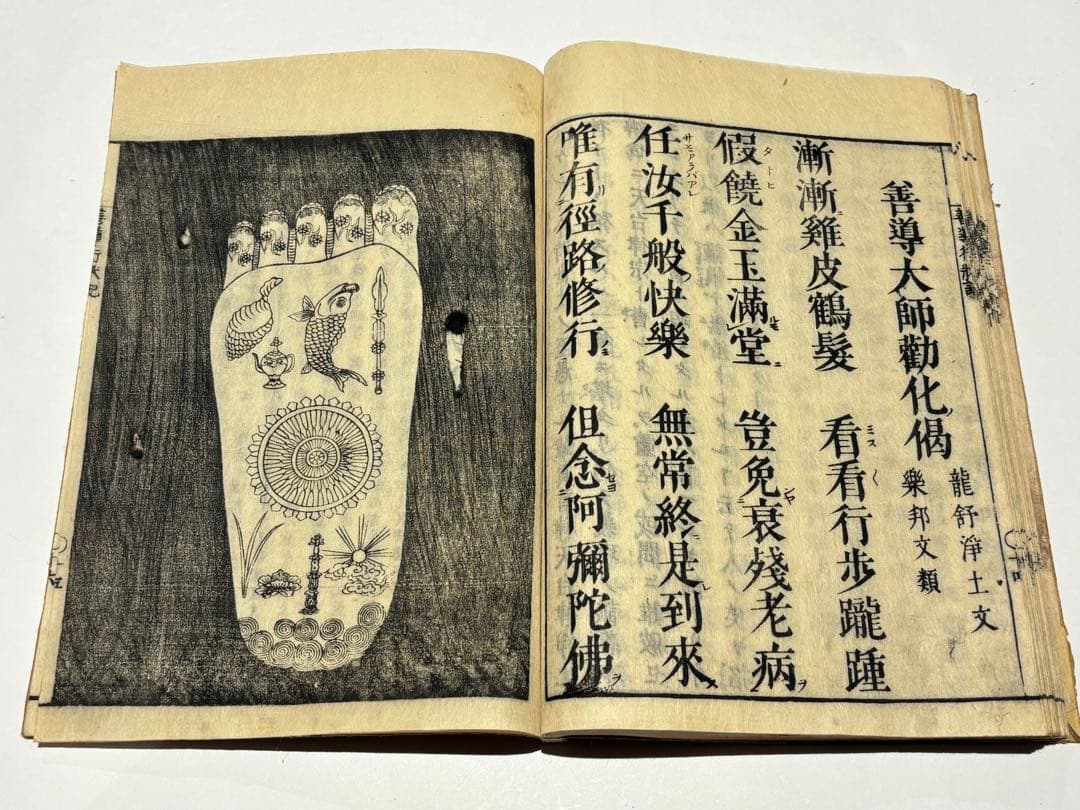 善導大師勸化偈
龍舒淨土文
樂邦文類
漸漸雞皮鶴髮 看看行步躘踵
假饒金玉滿堂 豈免衰殘老病
任汝千般快樂 無常終是到來
唯有徑路修行 但念阿彌陀佛